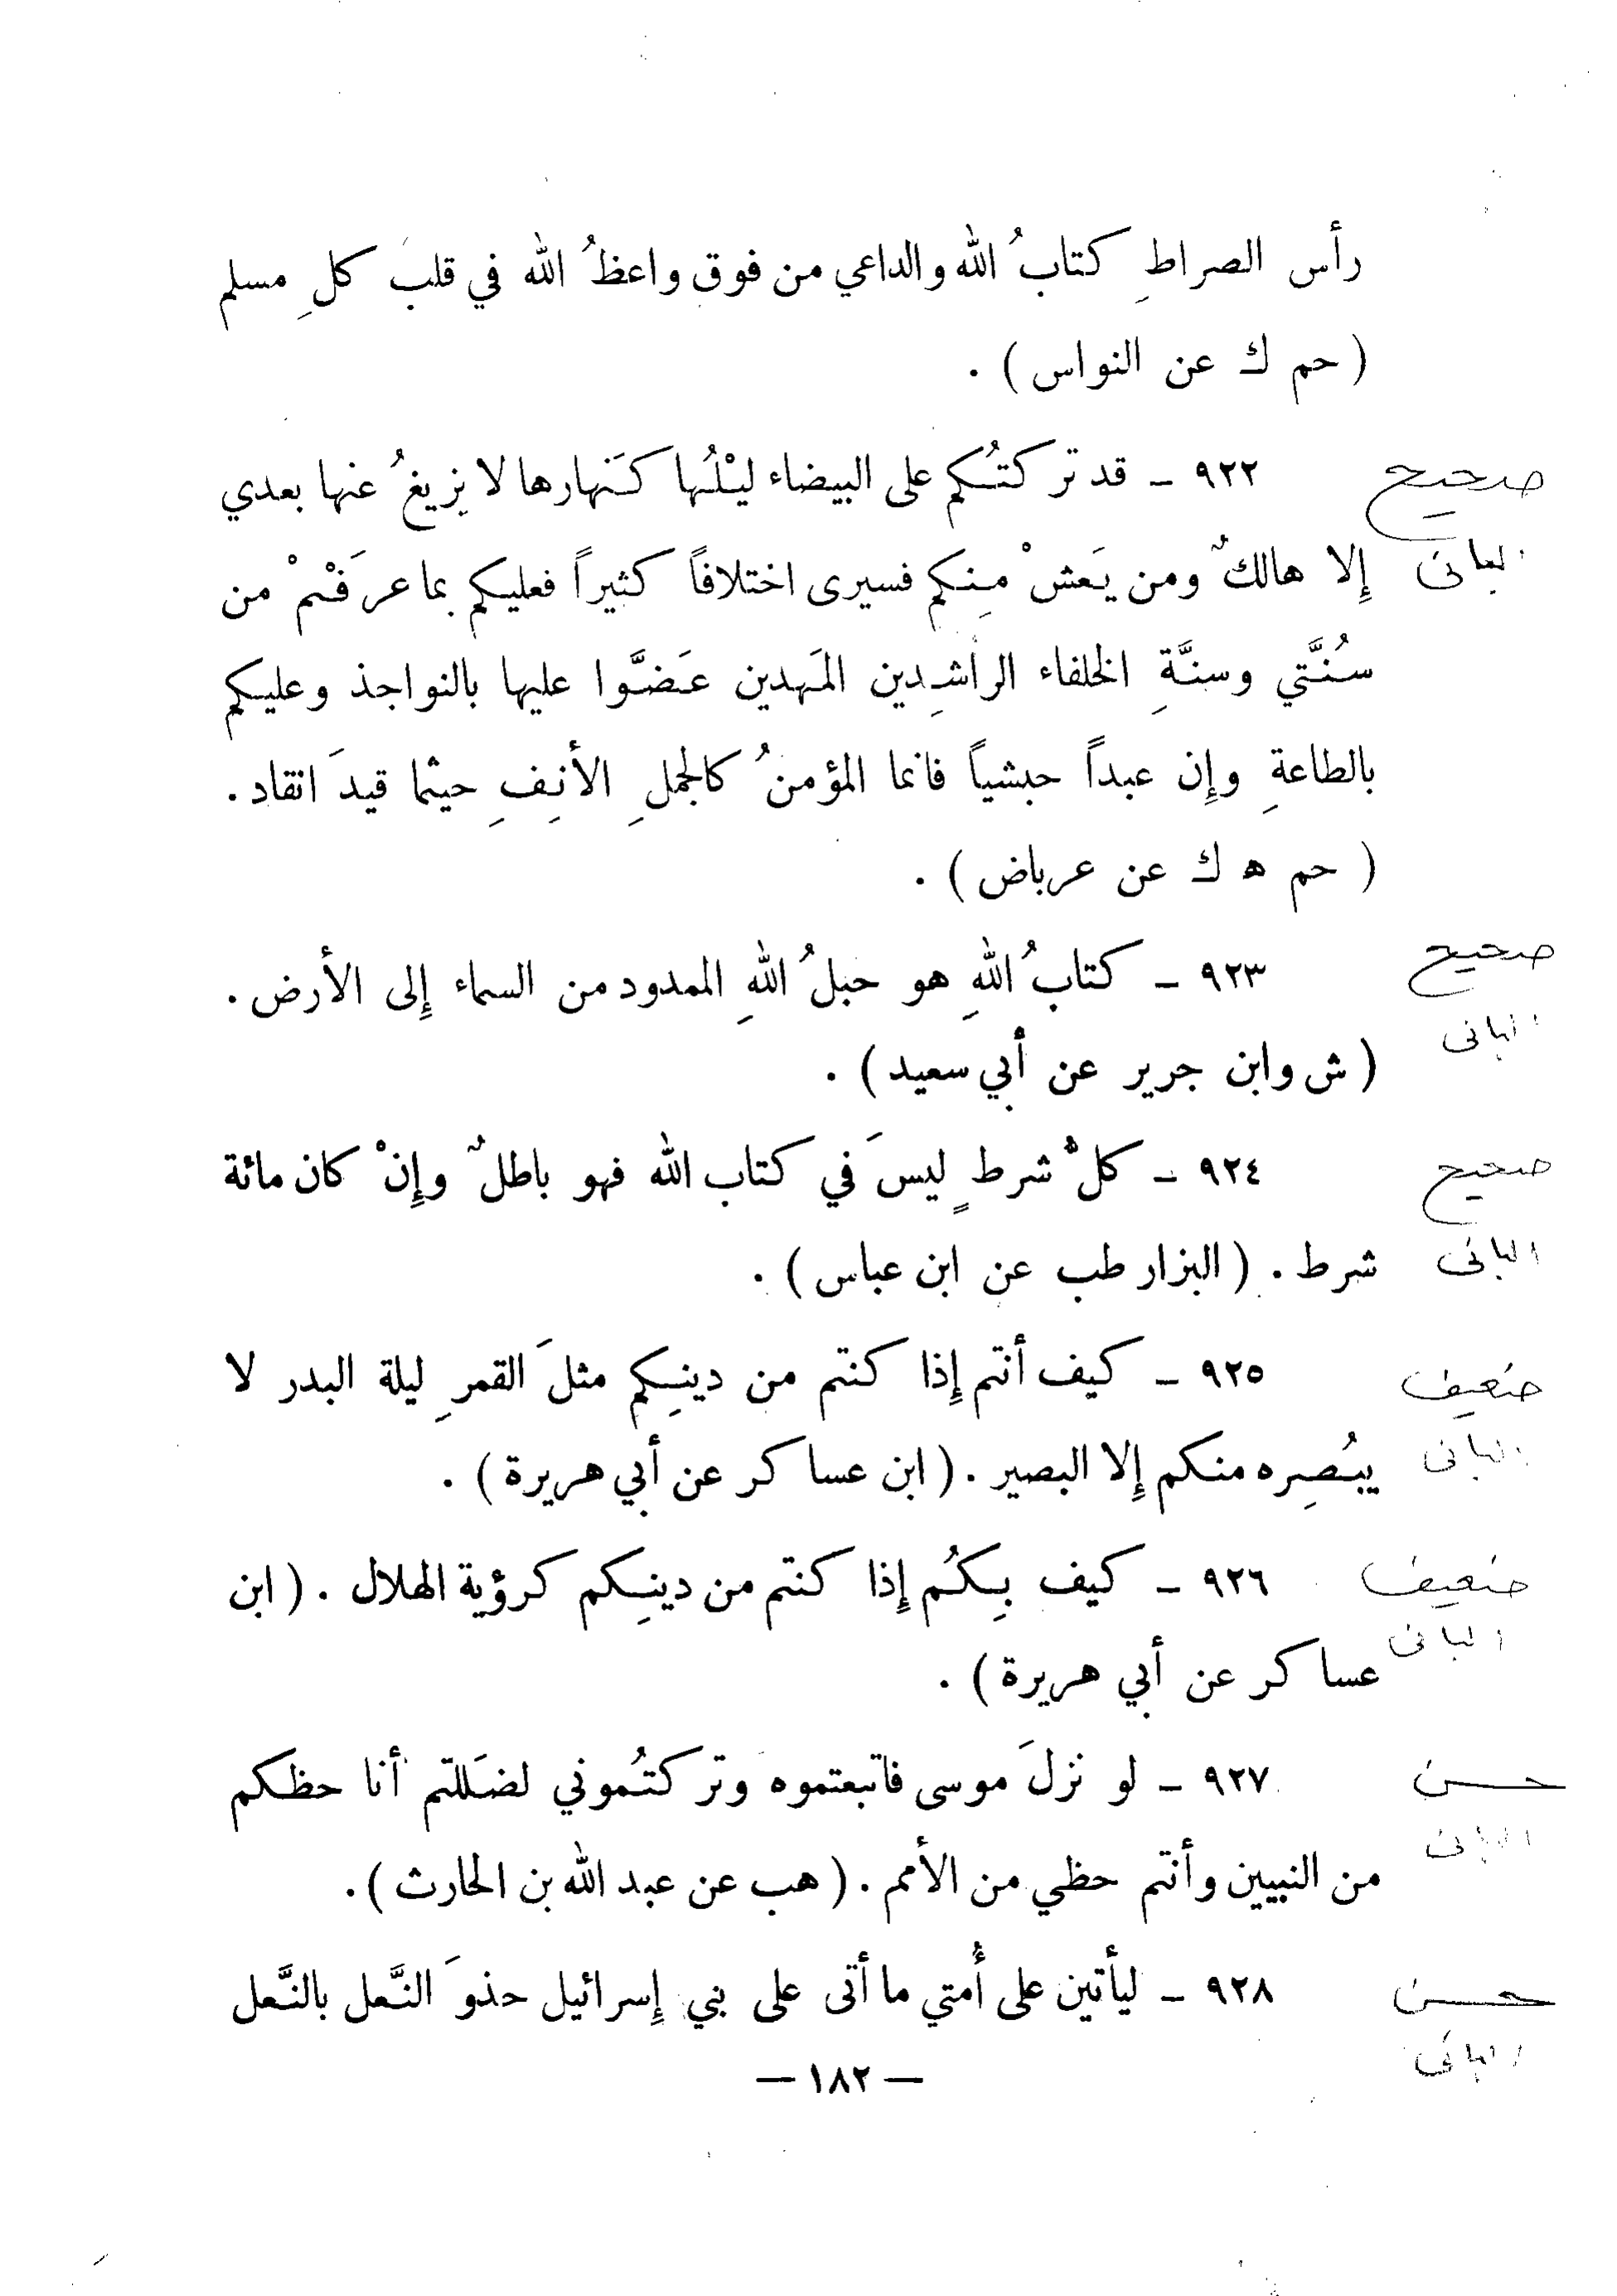 رأس الصراطِ كتابُ الله والداعي من فوق واعظُ الله في قلبَ كلِ مسلم
( حم ك عن النواس ) .
صحيح
٩٢٢ ــ قد تركتُكم على البيضاء ليْلُها كَنهارها لا يزيغُ عنها بعدي
البانى
إِلا هالكٌ ومن يَعشْ مِنكم فسيرى اختلافاً كثيراً فعليكم بما عرَفْتمْ من
سُنَّتي وسنَّةِ الخلفاء الراشِدين المَهدين عَضَّوا عليها بالنواجذ وعليكم
بالطاعةِ وإِن عبداً حبشياً فانما المؤمنُ كالجملِ الأنِفِ حيثما قيدَ انقاد .
( حم ه ك عن عرباض ) .
صحيح
٩٢٣ ــ كتابُ اللهِ هو حبلُ اللهِ الممدود من السماء إِلى الأرض .
البانى
( ش وابن جرير عن أبي سعيد ) .
صحيح
٩٢٤ ــ كلُّ شرطٍ ليسَ في كتاب الله فهو باطلٌ وإِنْ كان مائة
البانى
شرط . ( البزار طب عن ابن عباس ) .
ضعيف
٩٢٥ ــ كيف أنتم إِذا كنتم من دينِكم مثلَ القمرِ ليلة البدر لا
البانى
يبُصِره منكم إِلا البصير . ( ابن عساكر عن أبي هريرة ) .
ضعيف
٩٢٦ ــ كيف بِكُم إِذا كنتم من دينِكم كرؤية الهلال . ( ابن
البانى
عساكر عن أبي هريرة ) .
حسن
٩٢٧ ــ لو نزلَ موسى فاتبعتموه وتركتُموني لضَللتم أنا حظكم
البانى
من النبيين وأنتم حظي من الأمم . ( هب عن عبد الله بن الحارث ) .
حسن
٩٢٨ ــ ليأتين على أُمتي ما أتى على بني إِسرائيل حذوَ النَّعل بالنَّعل
البانى
— ١٨٢ —